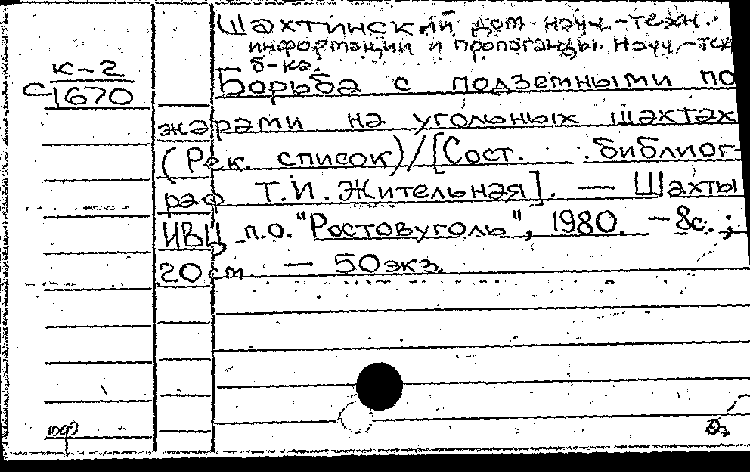 Шахтинский дом науч.-техн.
информации и пропаганды. Науч.-тех
б-ка.
к-2
С1670
Борьба с подземными по
жарами на угольных шахтах
(Рек. список)/[Сост. библиог-
раф Т.И. Жительная]. — Шахты
ИВЦ п.о. "Ростовуголь", 1980. — 8с.;
20 см — 50экз.